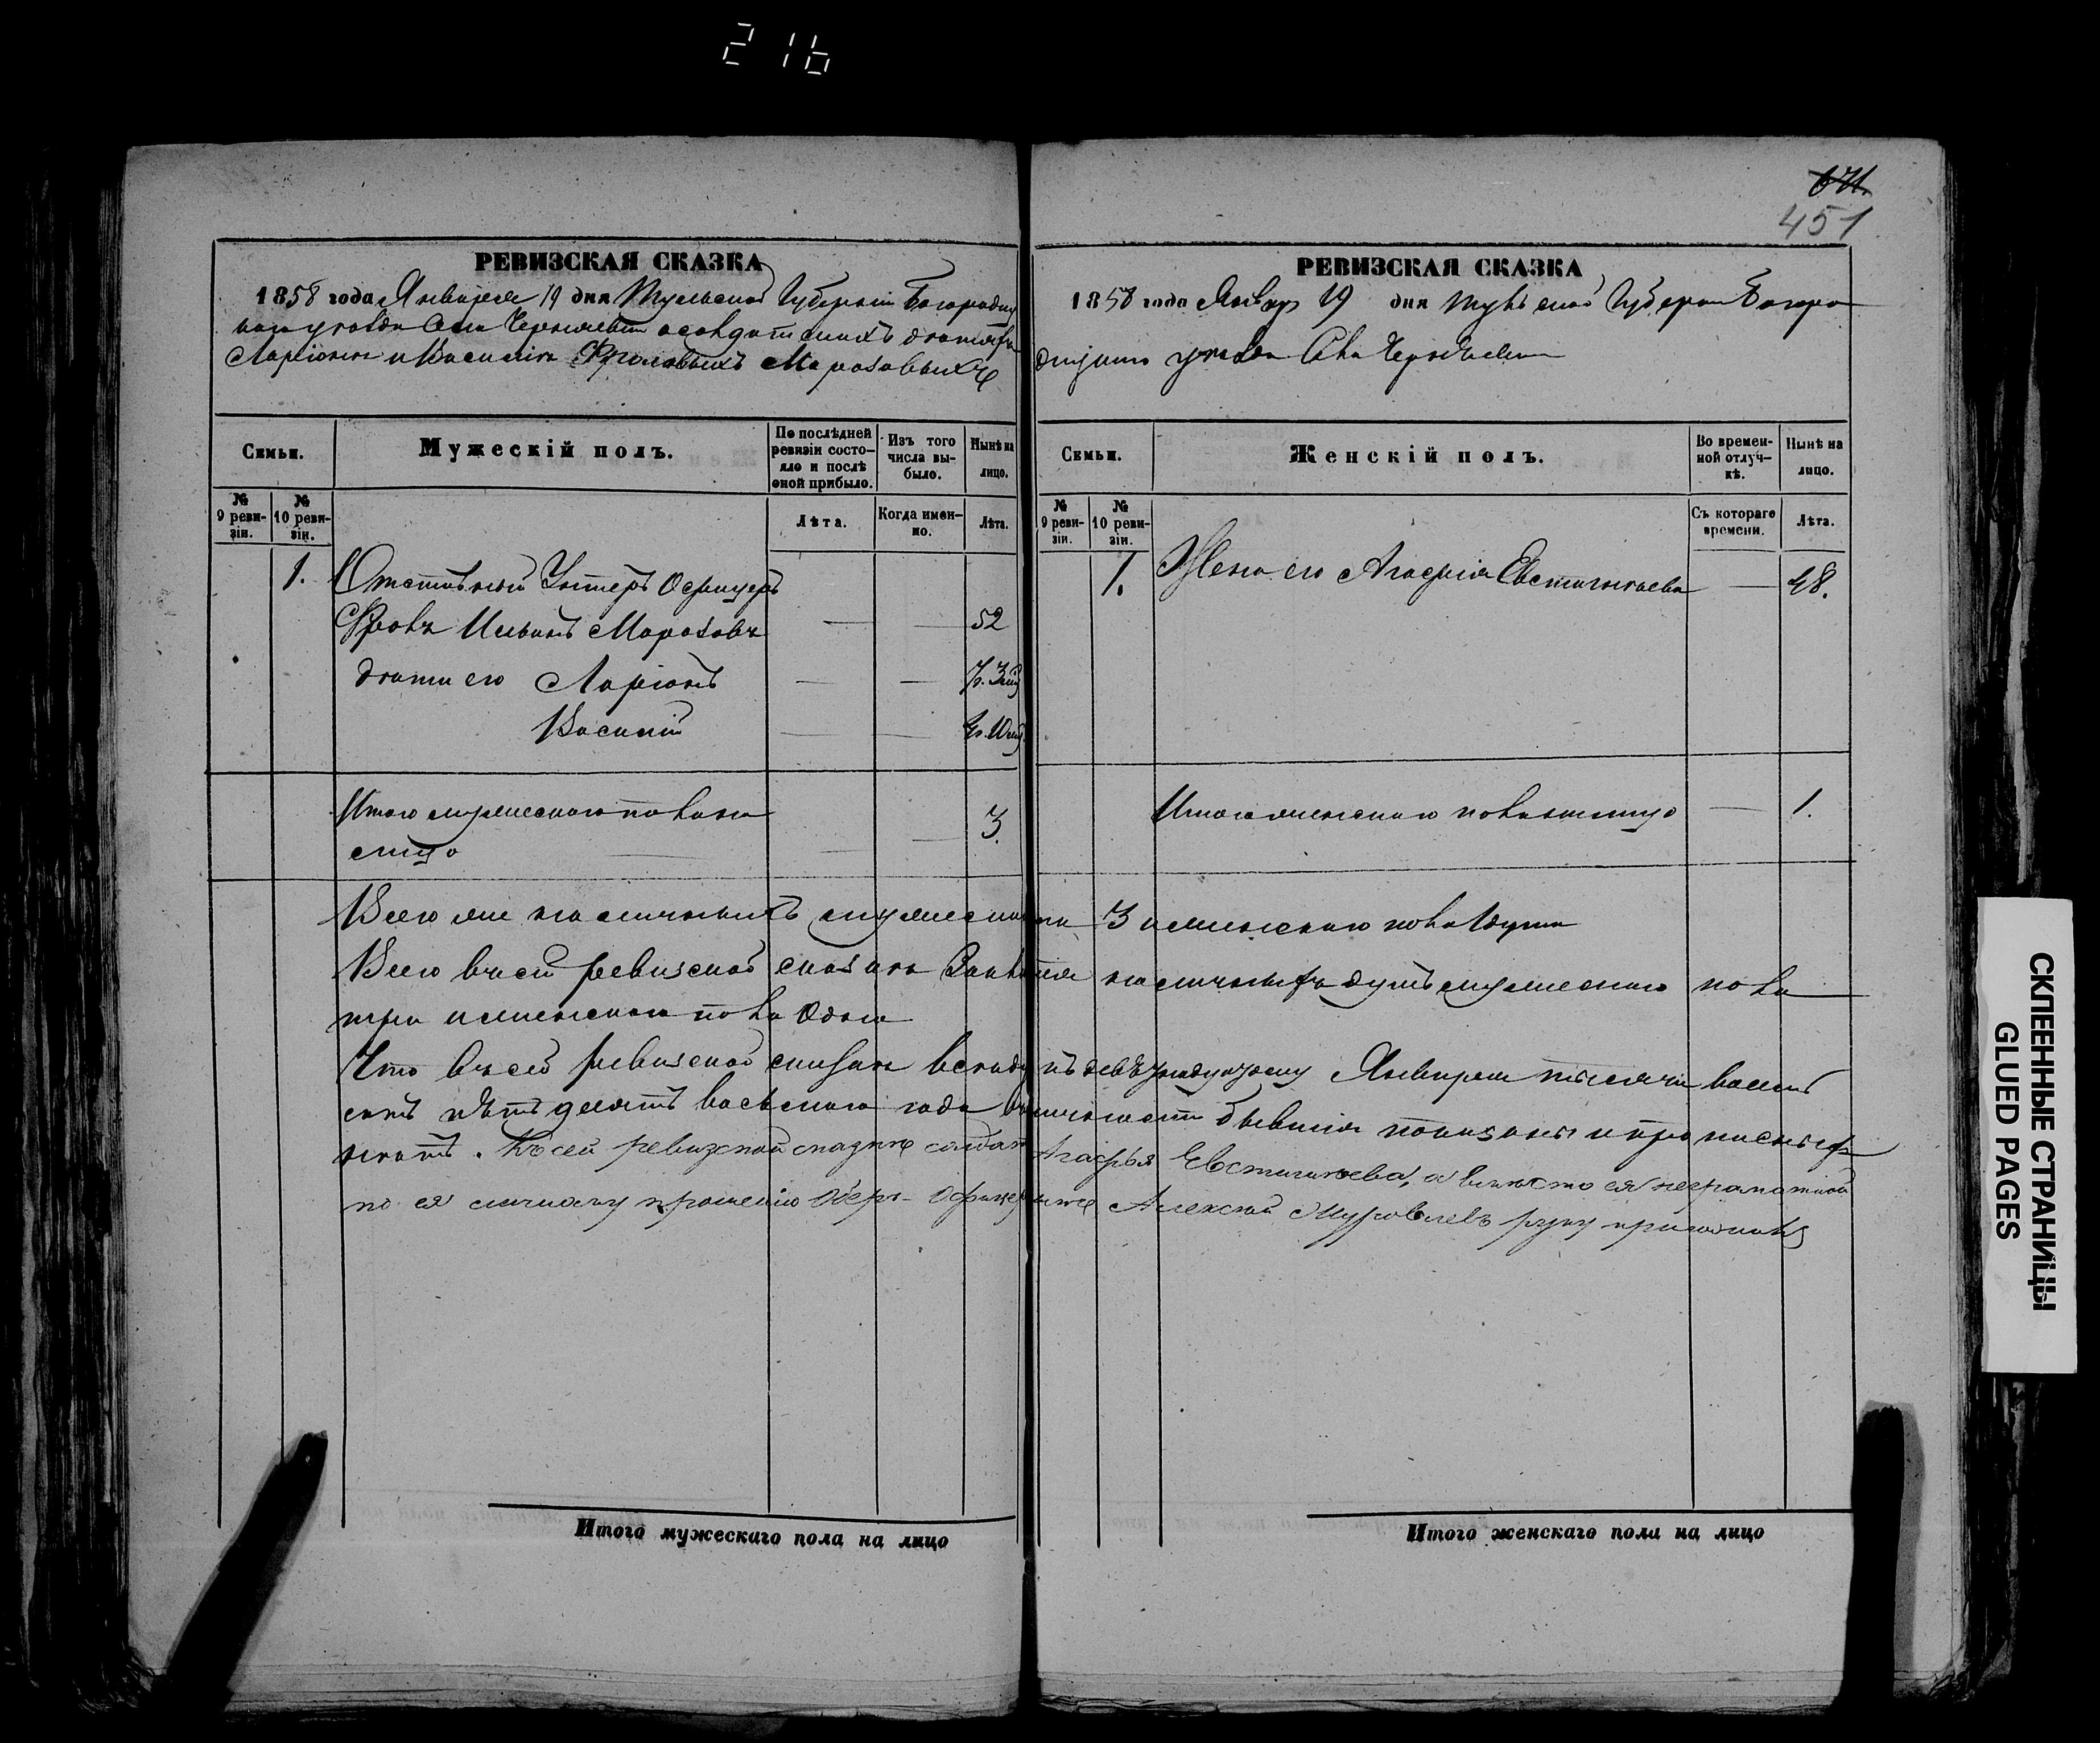 216
671.
451
РЕВИЗСКАЯ СКАЗКА
1858 года Января 19 дня Тульской Губерніи Богородиц
каго уезда Села о солдатскихъ детяхъ
Ларіоне и Василіе Фроловыхъ Морозовыхъ
Семьи.
Мужескій полъ.
По послѣдней ревизіи состояло и послѣ оной прибыло.
Изъ того числа выбыло.
Нынѣ на лицо.
№ 9 ревизіи.
№ 10 ревизіи.
Лѣта.
Когда именно.
Лѣта.
1. Отставный Унтеръ Офицеръ
Фролъ Ивановъ Морозовъ — — 52
дети его Ларіонъ — —
Василій — —
Итого мужескаго пола на
лицо — — 3.
РЕВИЗСКАЯ СКАЗКА
1858 года Январ 19 дня Тульской Губерніи Богоро
дицкаго уезда Села
Семьи.
Женскій полъ.
Во временной отлучкѣ.
Нынѣ на лицо.
№ 9 ревизіи.
№ 10 ревизіи.
Съ котораго времени.
Лѣта.
1. Жена его Агафія Евстигнеева — 48.
Итого женскаго пола на лицо — 1.
Всего же наличныхъ мужескаго 3 и женскаго пола 1 душа
Всего въ сей ревизской сказке наличныхъ душъ мужескаго пола
три и женскаго пола одна
Что въ сей ревизской сказке все къ девятнадцатому Января тысяча восемь
сотъ пятьдесятъ восьмаго года въ наличности бывшія показаны и прописныхъ
нетъ. Къ сей ревизской сказке солдат Агафья Евстигнеева, а вместо ея неграматной
по ея личному прошенію Оберъ-Офицер Алексей Муровлевъ руку приложилъ
Итого мужескаго пола на лицо
Итого женскаго пола на лицо
СКЛЕЕННЫЕ СТРАНИЦЫ
GLUED PAGES